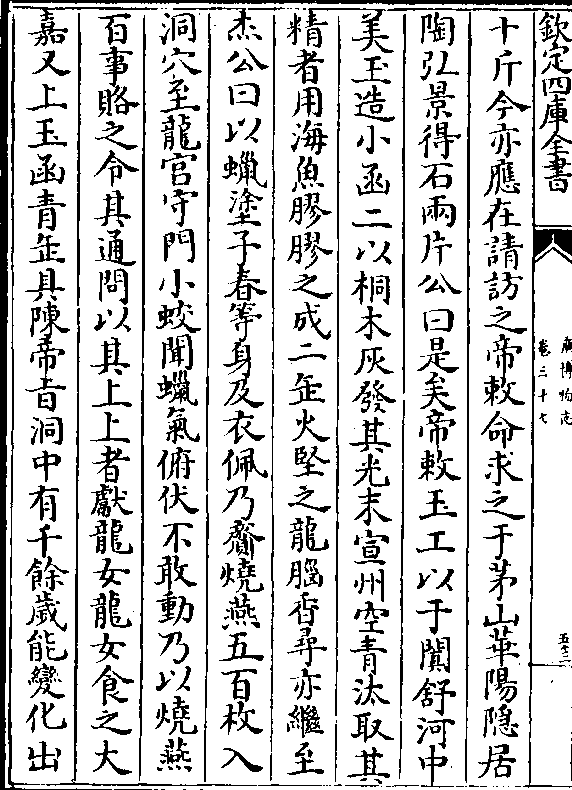 欽定四庫全書
廣博物志
卷三十七
五
十斤今亦應在請訪之帝敕命求之于茅山華陽隐居
陶弘景得石兩片公曰是矣帝敕玉工以于闐舒河中
美玉造小函二以桐木灰發其光末宣州空青汰取其
精者用海魚膠膠之成二缶火堅之龍腦香尋亦繼至
杰公曰以蠟塗子春等身及衣佩乃齎燒燕五百枚入
洞穴至龍宫守門小蛟聞蠟氣俯伏不敢動乃以燒燕
百事賂之令其通問以其上上者獻龍女龍女食之大
嘉又上玉函青缶具陳帝旨洞中有千餘嵗能變化出